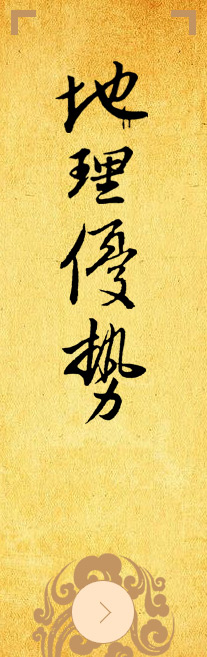 地理優勢